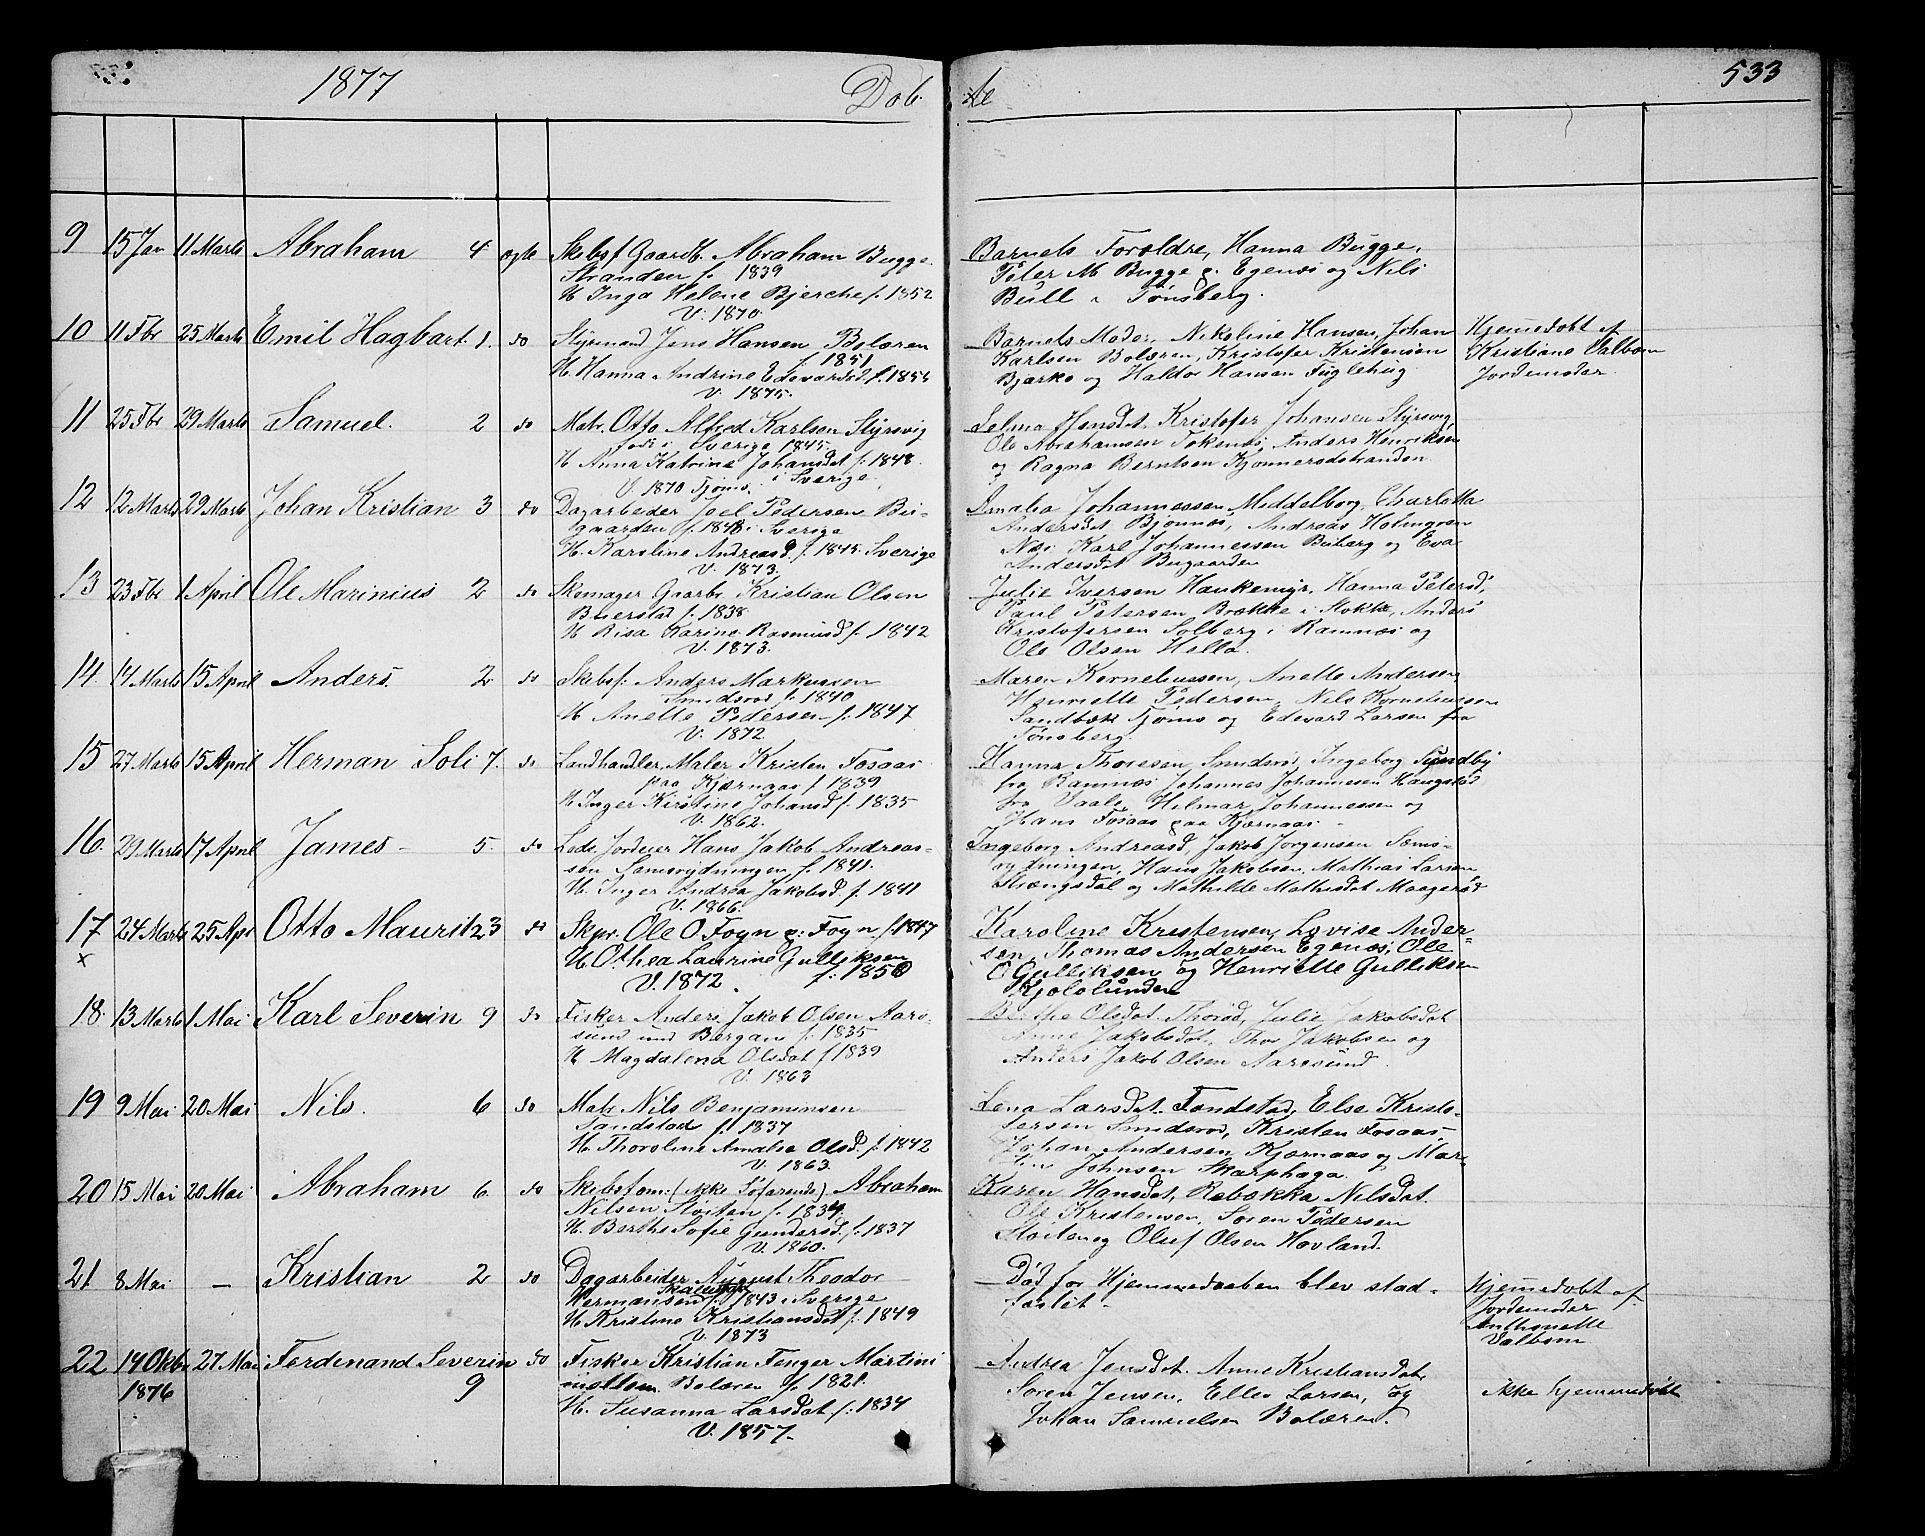 1877 Døb te 533
9 15 Jan 11 Marts Abraham 4 ægte Skibsf Gaardb. Abraham Bugge
Stranden f. 1839
H Inga Helene Bjerche f. 1852
V. 1870.
Barnets Forældre, Hanna Bugge,
Peter M Bugge p. Egenæs og Nils
Bull i Tønsberg.
10 11 Fbr 25 Marts Emil Hagbart. 1. do Styrmand Jens Hansen Bolæren
f. 1851
H. Hanna Andrine Edevardsd f. 1854
V. 1875.
Barnets Moder, Nikoline Hansen, Johan
Karlsen Bolæren, Kristofer Kristensen
Bjærkø og Haldor Hansen Fuglehug
Hjemmedøbt af
Kristiane Valbom
Jordemoder.
11 25 Fbr 29 Marts Samuel. 2 do Matr. Otto Alfred Karlsen Styrsvig
født i Sverige 1845.
H Anna Katrine Johansdat f. 1848.
V. 1870 Tjømø. i Sverige.
Selma Hansdat. Kristofer Johansen Styrsvig,
Ole Abrahamsen Tokenæs, Anders Henriksen
og Ragna Berntsen Kjønnerødstranden
12 12 Marts 29 Marts Johan Kristian 3 do Dagarbeider Joel Pedersen Bu-
gaarden f. 1848 i Sverige
H. Karoline Andreasd f. 1845. Sverige
V. 1873.
Amalia Johannessen Middelborg, Charlotta
Andersdat Bjønnes, Andreas Holmgren
Næs Karl Johannessen Buberg og Eva
Andersdat Bugaarden
13 23 Fbr 1 April Ole Marinius 2 do Skomager Gaardbr Kristian Olsen
Buerstad f. 1838
H Risa Karine Rasmusd f. 1842
V. 1873.
Julie Iversen Haukemyr, Hanna Petersd,
Paul Petersen Brække i Stokke, Anders
Kristofersen Solberg i Ramnæs og
Ole Olsen Hella.
14. 14 Marts 15 April Anders. 2 do Skibsf. Anders Markussen
Smidsrød f. 1840
H Anette Pedersen f. 1847
V. 1872.
Maren Korneliussen, Anette Andersen
Henriette Pedersen, Nils Korneliussen
Sandbæk Tjømø og Edevard Larsen fra
Tønsberg.
15 27 Marts 15 April Herman Soli 7. do Landhandler, Maler Kristen Fosaas
paa Kjærnaas f 1839
H Inger Kirstine Johansd f. 1835
V. 1862.
Hanna Thoresen, Smidsrød, Ingeborg Sundby
fra Ramnæs Johannes Johannesen Haugstad
fra Vaale, Hilmar Johannessen og
Hans Fosaas paa Kjærnaas
16. 29 Marts 17 April James - 5. do Lods Jordeier Hans Jakob Andreas-
sen Sæmsrydningen f. 1841.
H. Inger Andrea Jakobsd. f. 1841
V. 1866.
Ingeborg Andreasd, Jakob Jørgensen Sæms-
rydningen, Hans Jakobsen, Mathias Larsen
Strængsdal og Mathilde Mathisdat Maagerød
17 24 Marts 25 Apr Otto Maurits 3 do Skpr. Ole O. Føyn p. Føyn f. 1847
x
H. Othea Laurine Gulliksen
V. 1872. f. 1850
Karoline Kristensen, Lovise Ander-
sen Thomas Andersen Egenæs, Ole
O. Gulliksen og Henriette Gulliksen
Kjølølunden
18. 13 Marts 1 Mai Karl Severin 9 do Fisker Anders Jakob Olsen Aarø-
sund und Bergan f. 1835
H Magdalena Olsdat f 1839
V. 1863
Berthe Olsdat Thorød, Julie Jakobsdat
Anne Jakobsdat, Thor Jakobsen og
Anders Jakob Olsen Aarøsund.
19 9 Mai 20 Mai Nils. 6 do Matr. Nils Benjaminsen
Sandstad f. 1837
H. Thoroline Amalie Olsd. f. 1842
V. 1863.
Lena Larsdat Sandstad, Else Kristo-
fersen Smidsrød, Kristen Fosaas,
Johan Andersen Kjærnaas og Mar-
tin Johnsen Skarphaga.
20 15 Mai 20 Mai Abraham 6. do Skibstøm: (ikke Søfarende) Abraham
Nilsen Sloiten f. 1834.
H. Berthe Sofie Gundersd. f. 1837
V. 1860.
Karen Hansdat, Rebækka Nilsdat
Ole Kristensen, Søren Pedersen
Sloiten og Oluf Olsen Hovland.
21. 8 Mai - Kristian 2 do Dagarbeider August Theodor
Hermansen f. 1843 i Sverige
H Kristine Kristiansdat f. 1849
V. 1873
Død før Hjemmedaaben blev stad-
fæstet.
Hjemmedøbt af
Jordemoder
Anthonette
Valbom
22 14 Oktbr 27 Mai Ferdenand Severin do Fisker Kristian Fenger Martini
1876 9 mellom Bolæren f. 1821.
H. Susanna Larsdat f. 1834
V. 1857.
Andrea Jensdat. Anne Kristiansdat,
Søren Jensen, Ellev Larsen, og
Johan Samuelsen Bolæren.
ikke hjemmedøbt